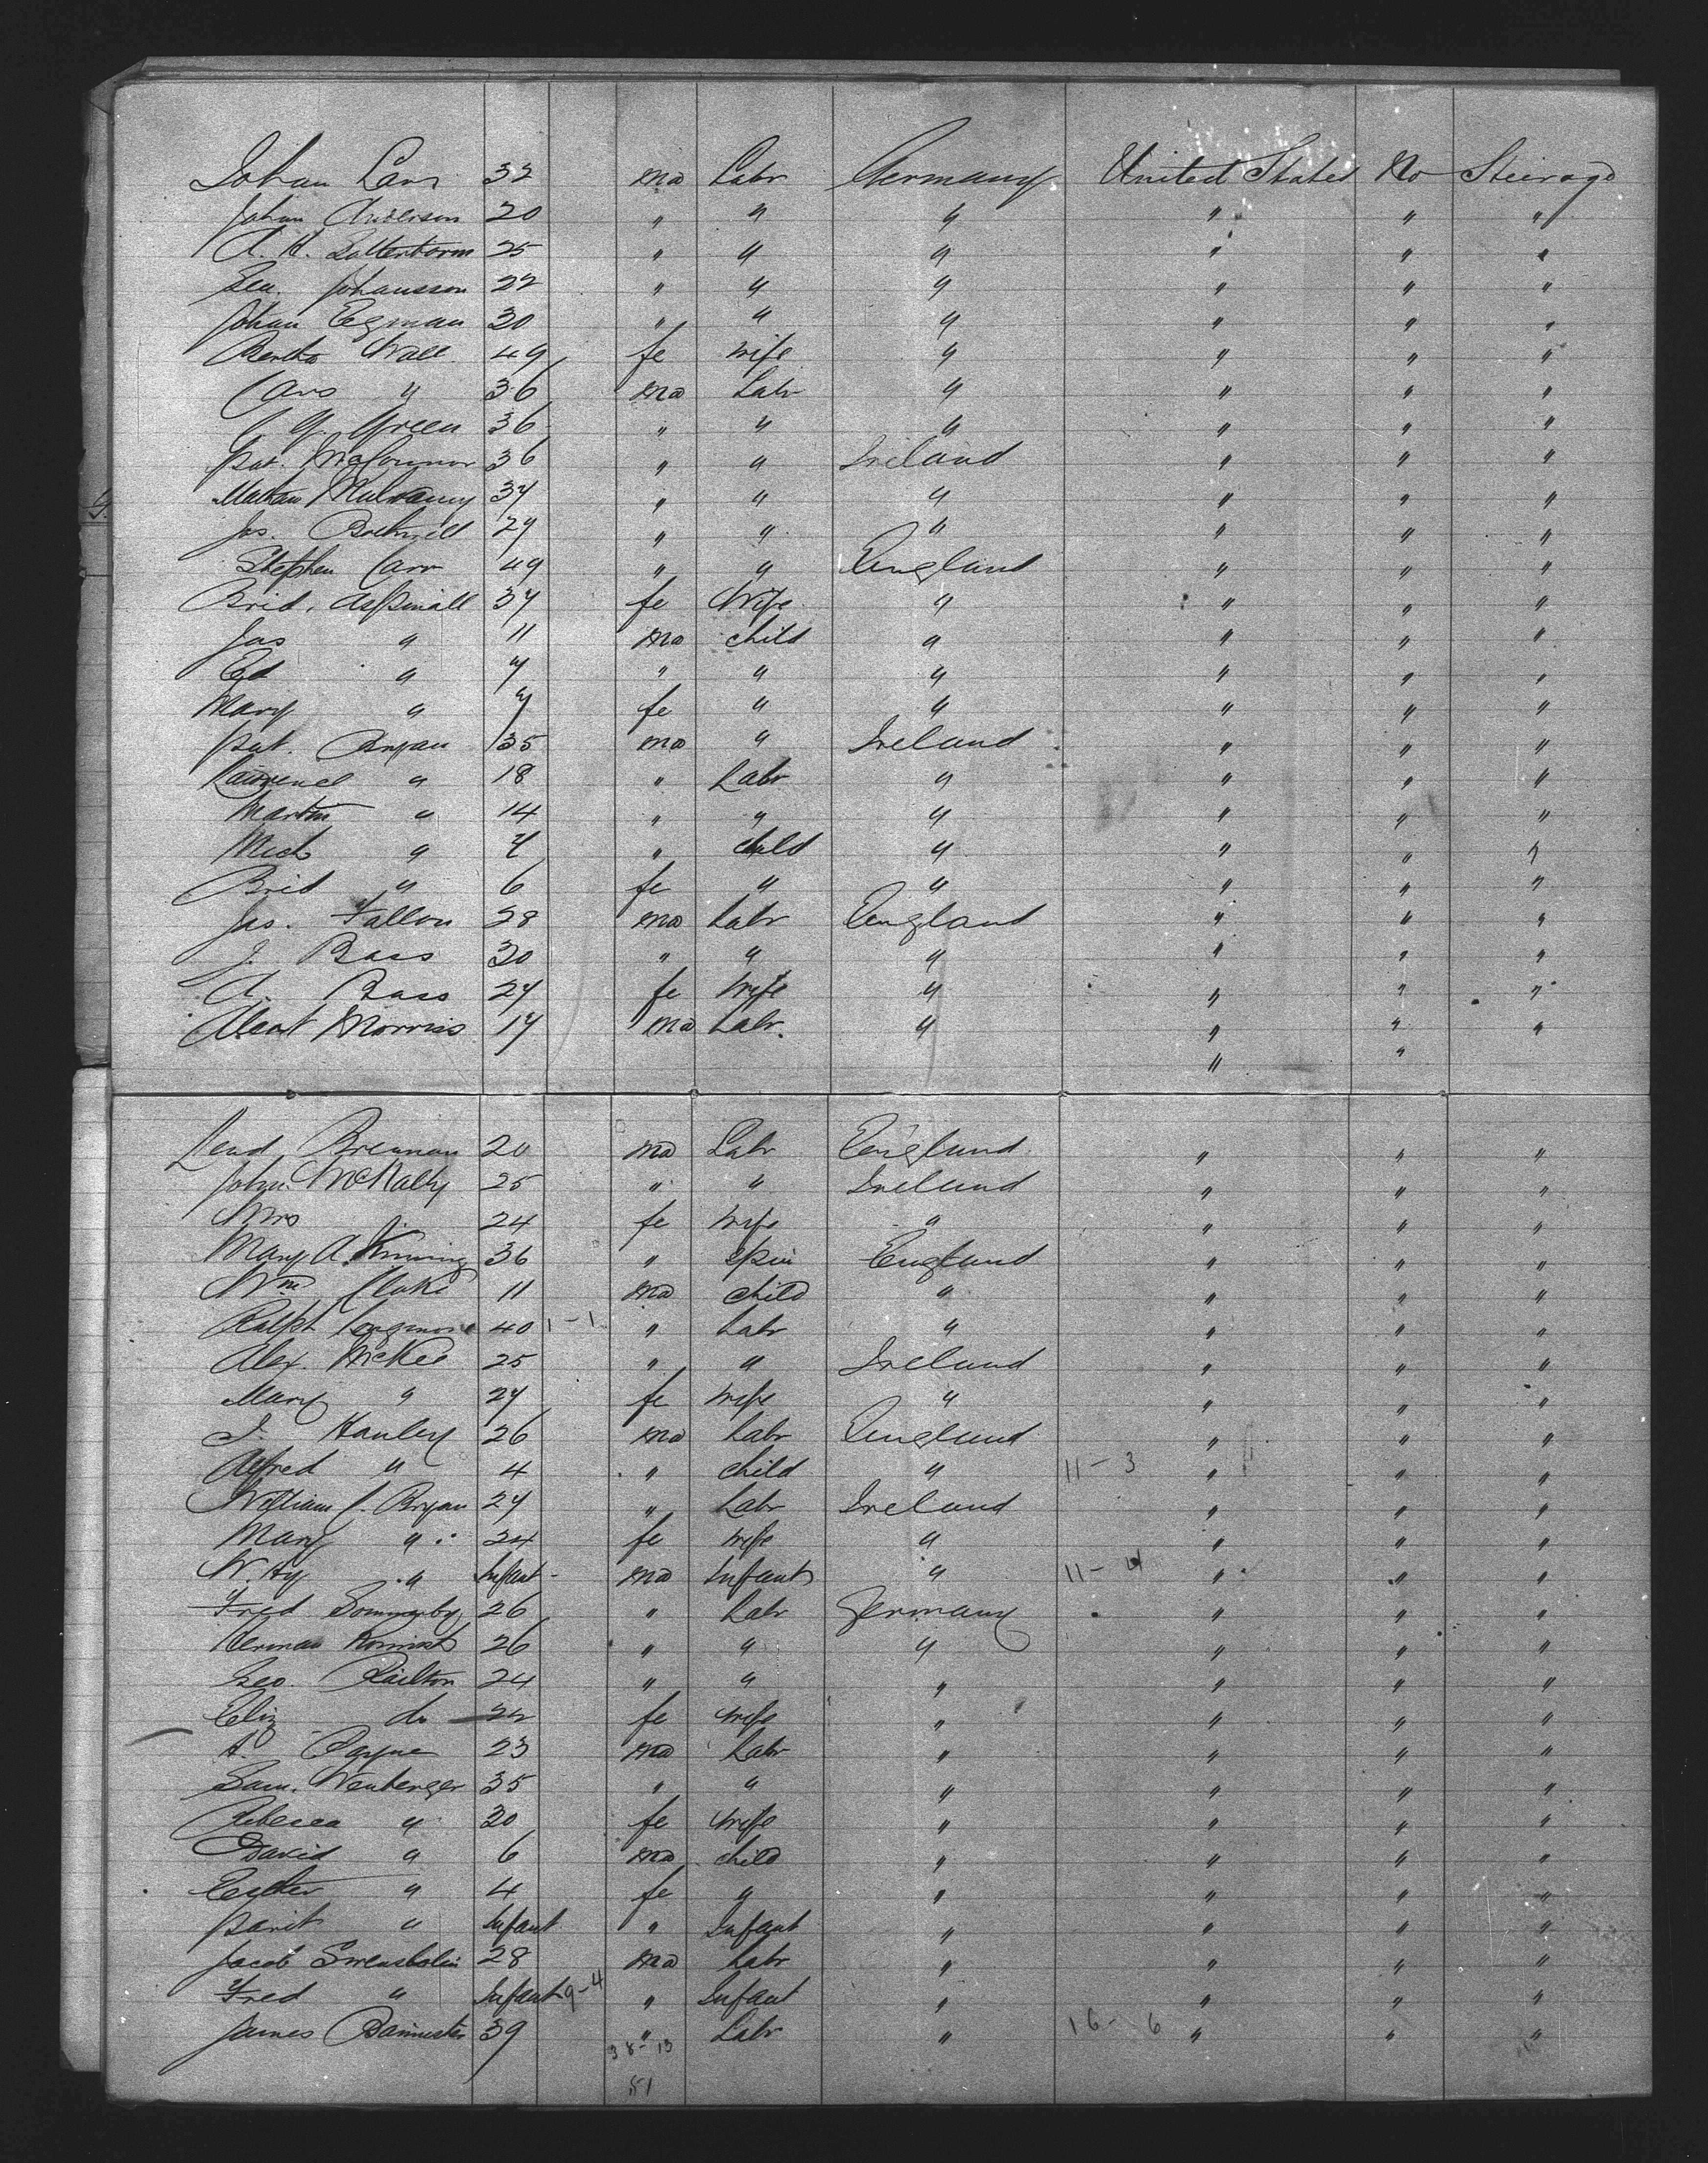 Johan Lars 32 ma Labr Germany United States No Steerage
Johan Anderson 20 " " " " " "
A. H. 25 " " " " " "
Johansson 22 " " " " " "
Johan Egman 30 " " " " " "
Bertha Wall 49 fe wife " " " "
Lars " 36 ma Labr " " " "
Green 36 " " " " " "
Pat. McConnor 36 " " Ireland " " "
Mulvaney 37 " " " " " "
Jos. 27 " " " " " "
Stephen Carr 49 " " England " " "
Brid. Aspinall 37 fe Wife " " " "
Jas " 11 ma child " " " "
Ed " 7 " " " " " "
Mary " 7 fe " " " " "
Pat. Bryan 35 ma " Ireland " " "
Lawrence " 18 " Labr " " " "
Martin " 14 " " " " " "
Mich " 7 " child " " " "
Brid " 6 fe " " " " "
Jas. Fallon 28 ma Labr England " " "
J. Bass 30 " " " " " "
A. Bass 27 fe wife " " " "
Morriss 17 ma Labr. " " " "
" "
Brennan 20 ma Labr England " " "
John McNally 25 " " Ireland " " "
Mrs " 24 fe wife " " " "
Mary A. 36 " Spin England " " "
Wm. Clake 11 ma child " " " "
Ralph 40 1-1 " Labr " " " "
Alex. McKee 25 " " Ireland " " "
Mary " 27 fe wife " " " "
J. Hanley 26 ma Labr England " " "
Alfred " 4 " child " 11-3 " " "
William J. Bryan 27 " Labr Ireland " " "
Mary " 24 fe wife " " " "
W. Hy " Infant ma Infant " 11-4 " " "
Fred 26 " Labr Germany " " "
Herman 26 " " " " " "
Geo. Railton 24 " " " " " "
Eliz do 22 fe wife " " " "
A. Payne 23 ma Labr " " " "
Sam. Wenberger 35 " " " " " "
Rebecca " 30 fe wife " " " "
David " 6 ma child " " " "
Esther " 4 fe " " " " "
" Infant " Infant " " " "
Jacob 28 ma Labr " " " "
Fred " Infant 9-4 " Infant " " " "
James Bannister 39 " Labr " 16-6 " " "
38-13
51